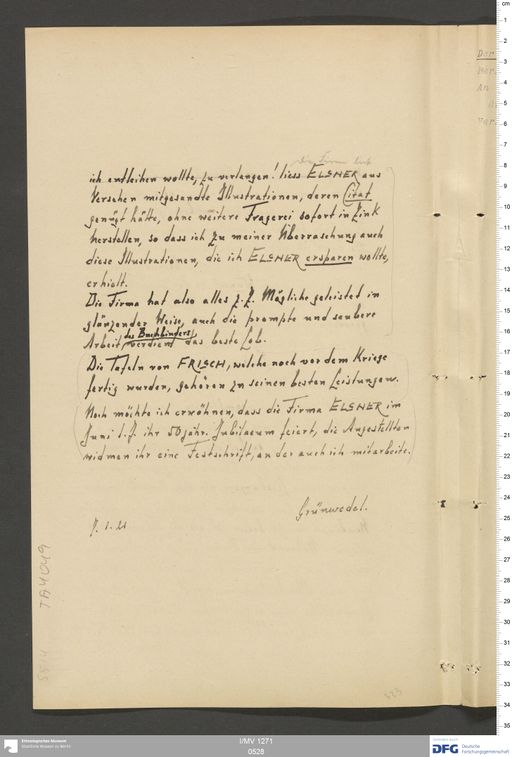 Die Firma liess
ich entleihen wollte, zu verlangen! liess ELSNER aus
Versehen mitgesandte Illustrationen, deren Citat
genügt hätte, ohne weitere Fragerei sofort in Zink
herstellen, so dass ich zu meiner Überraschung auch
diese Illustrationen, die ich ELSNER ersparen wollte,
erhielt.
Die Firma hat also alles z. Z. Mögliche geleistet in
glänzender Weise, auch die prompte und saubere
des Buchbinders
Arbeit verdient das beste Lob.
Die Tafeln von FRISCH, welche noch vor dem Kriege
fertig wurden, gehören zu seinen besten Leistungen.
Noch möchte ich erwähnen, dass die Firma ELSNER im
Juni l. J. ihr 50 jähr. Jubilaeum feiert, die Angestellten
widmen ihr eine Festschrift, an der auch ich mitarbeite.
Grünwedel.
TA 4049
523
Ethnologisches Museum
Staatliche Museen zu Berlin
I/MV 1271
0528
DFG Deutsche
Forschungsgemeinschaft